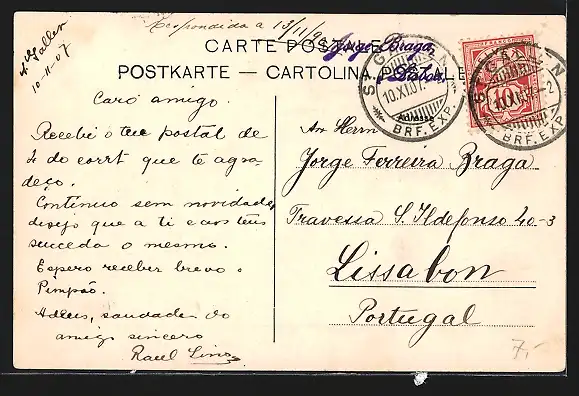 Respondida a 13/11/9
St Gallen
10-11-07
CARTE POSTALE
Jorge Braga,
Lisboa.
POSTKARTE — CARTOLINA POSTALE
ST. GALLEN
10.XI.07.
BRF. EXP.
ST. GALLEN
10.XI.07.
BRF. EXP.
FRANCO
10
Adresse
Caro amigo.
Recebi o teu postal de
4 do corrt que te agra-
deço.
Continuo sem novidade,
desejo que a ti e aos teus
suceda o mesmo.
Espero receber brevo o
Pimpão.
Adeus, saudades do
amigo sincero
Raul
An Herrn
Jorge Ferreira Braga
Travessa S. Ildefonso 40-3
Lissabon
Portugal
7,-